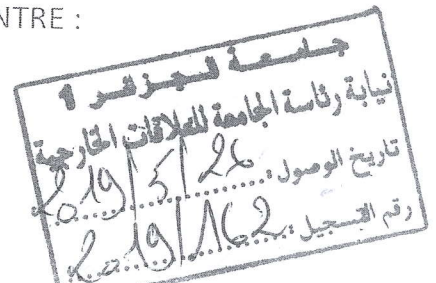 NTRE :
جامعة الجزائر 1
نيابة رئاسة الجامعة للعلاقات الخارجية
تاريخ الوصول: 2019/5/26
رقم التسجيل: 2019/162